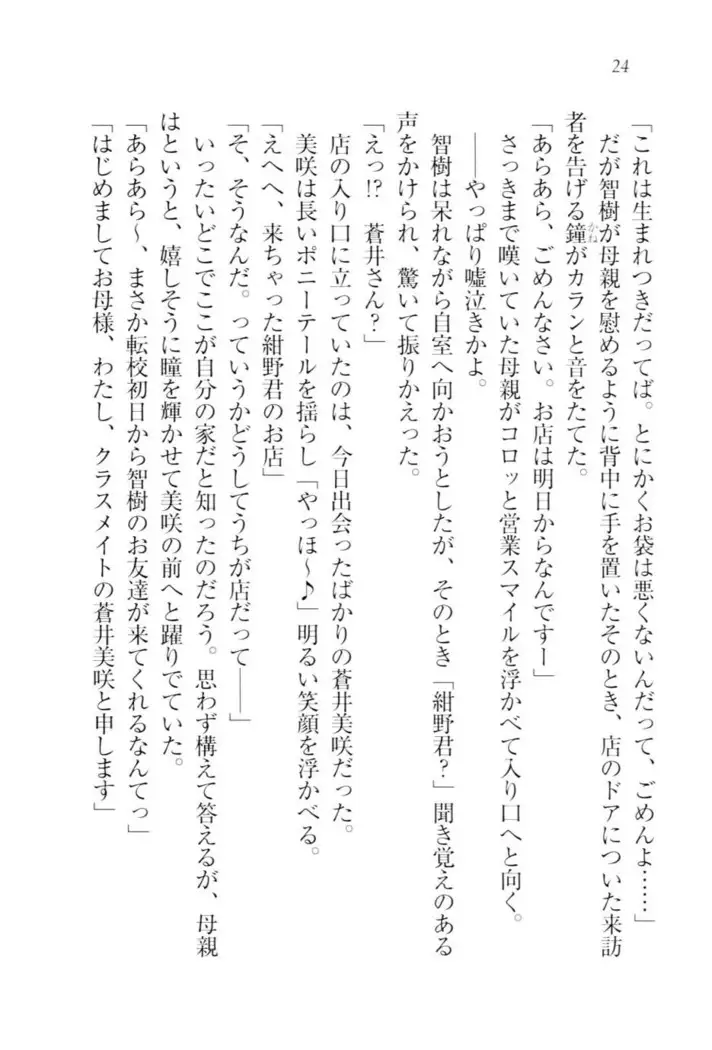 24
「これは生まれつきだってば。とにかくお袋は悪くないんだって、ごめんよ……」
だが智樹が母親を慰めるように背中に手を置いたそのとき、店のドアについた来訪
者を告げる鐘がカランと音をたてた。
かね
「あらあら、ごめんなさい。お店は明日からなんですー」
さっきまで嘆いていた母親がコロッと営業スマイルを浮かべて入り口へと向く。
――やっぱり嘘泣きかよ。
智樹は呆れながら自室へ向かおうとしたが、そのとき「紺野君?」聞き覚えのある
声をかけられ、驚いて振りかえった。
「えっ!? 蒼井さん?」
店の入り口に立っていたのは、今日出会ったばかりの蒼井美咲だった。
美咲は長いポニーテールを揺らし「やっほ〜♪」明るい笑顔を浮かべる。
「えへへ、来ちゃった紺野君のお店」
「そ、そうなんだ。っていうかどうしてうちが店だって――」
いったいどこでここが自分の家だと知ったのだろう。思わず構えて答えるが、母親
はというと、嬉しそうに瞳を輝かせて美咲の前へと躍りでていた。
「あらあら〜、まさか転校初日から智樹のお友達が来てくれるなんてっ」
「はじめましてお母様、わたし、クラスメイトの蒼井美咲と申します」